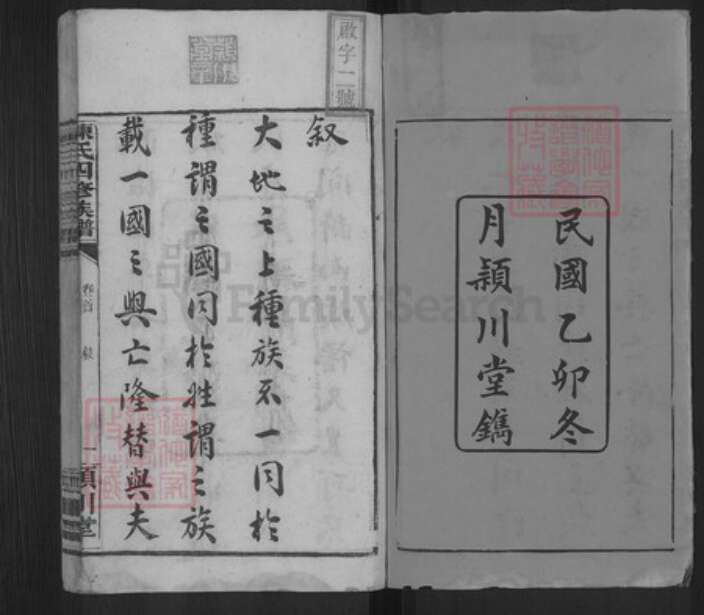 民國乙卯冬
月潁川堂鐫
啟字二號
叙
大地之上種族不一同於
種謂之國同於姓謂之族
載一國之興亡隆替與夫
陳氏四修族譜
卷首
叙
一
潁川堂
FamilySearch